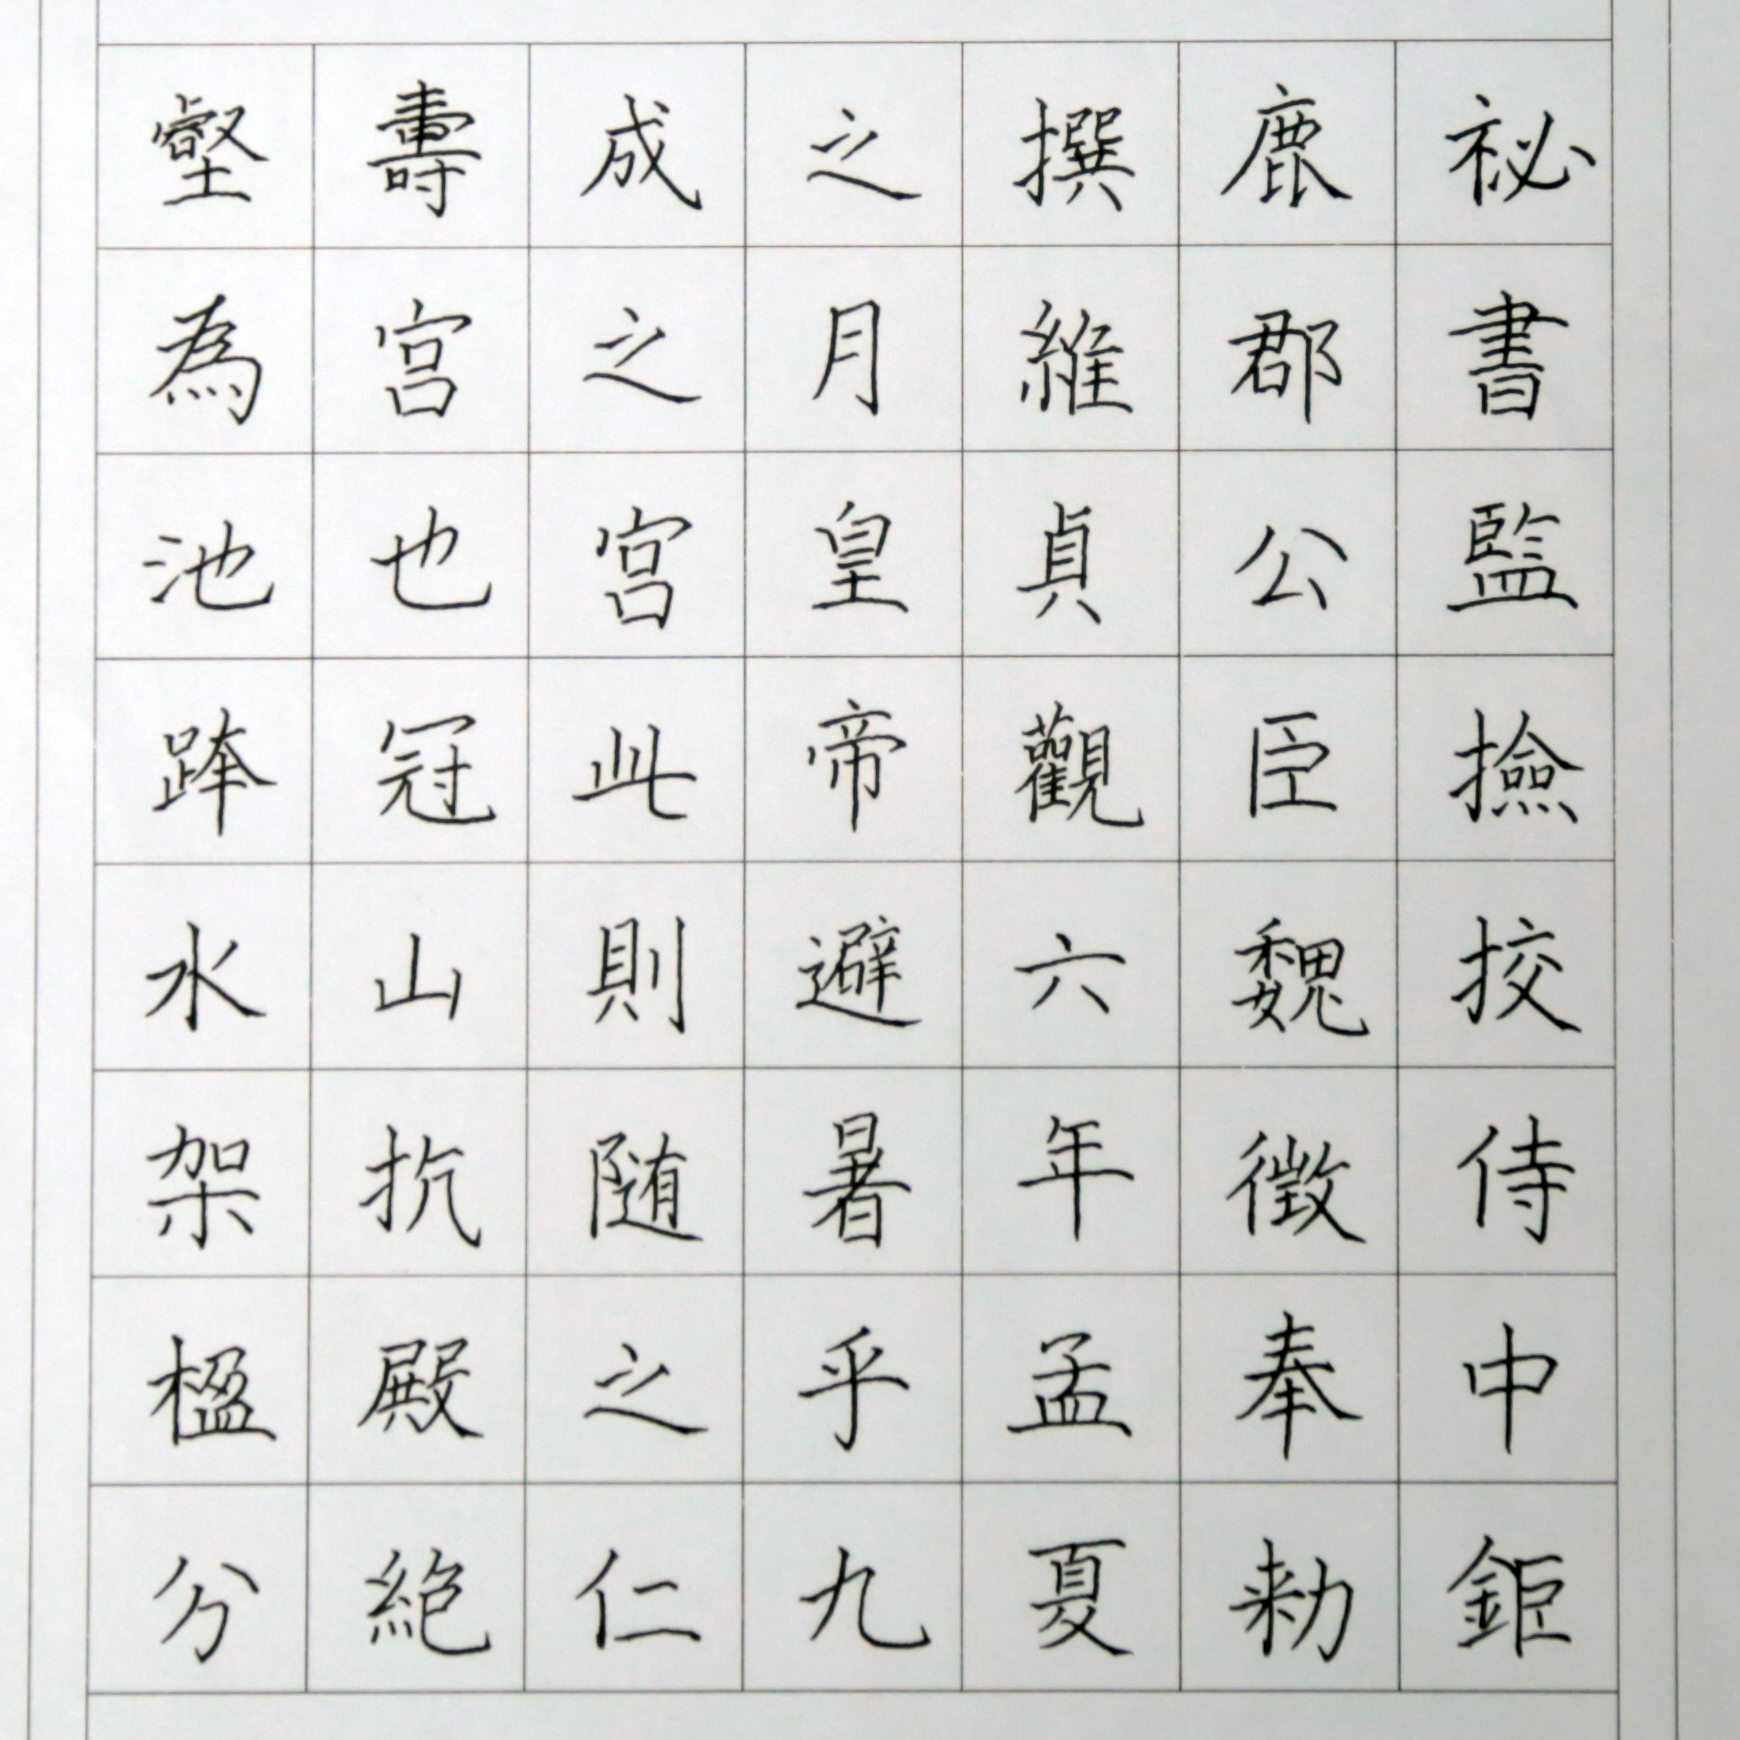 祕書監撿挍侍中鉅
鹿郡公臣魏徵奉勑
撰維貞觀六年孟夏
之月皇帝避暑乎九
成之宮此則随之仁
壽宮也冠山抗殿絕
壑為池跨水架楹分